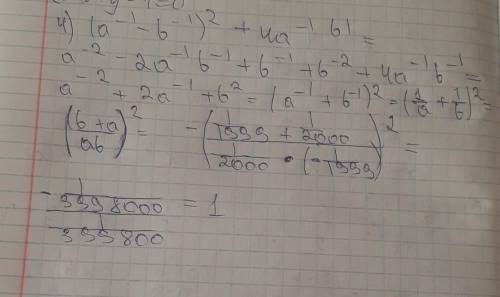 4) (a⁻¹ - b⁻¹)² + 4a⁻¹ b¹ =
a⁻² - 2a⁻¹ b⁻¹ + b⁻¹ + b⁻² + 4a⁻¹ b⁻¹ =
a⁻² + 2a⁻¹ + b² = (a⁻¹ + b⁻¹)² = (1/a + 1/b)² =
((b + a)/(ab))² = - ((1/1999 + 1/2000)/(1/2000 • (-1/1999)))² =
- (1/3998000)/(1/399800) = 1